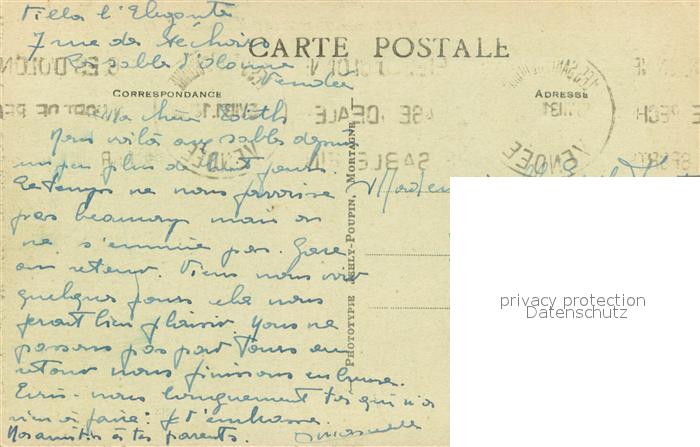 Villa l'Elegante
7 rue des
Les Sables d'Olonne
Vendée
CARTE POSTALE
CORRESPONDANCE
ADRESSE
Ma chère Edith
Nous voilà aux Sables depuis
un peu plus de huit jours.
Le temps ne nous favorise
pas beaucoup mais on
ne s'ennuie pas.
au retour. Viens nous voir
quelques jours cela nous
ferait bien plaisir. Nous ne
passons pas par Tours au
retour nous finissons en
Ecris-nous longuement toi qui n'as
rien à faire. Je t'embrasse.
Nos amitiés à tes parents.
PHOTOTYPIE JEHLY-POUPIN, MORTAGNE
VENDÉE
privacy protection
Datenschutz